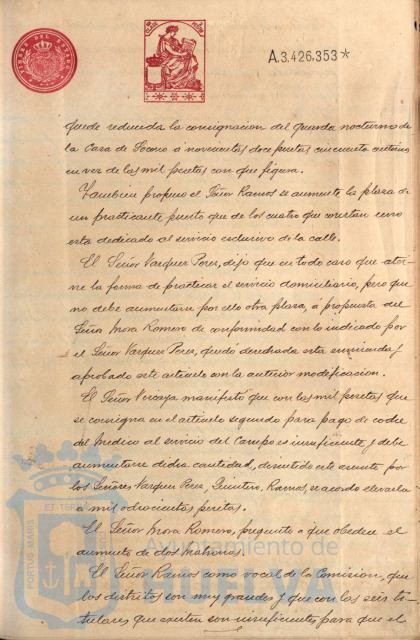 TIMBRE DEL ESTADO
A.3.426,353*
quede reducida la consignacion del guarda nocturno de
la Casa de Socorro á novecientas doce pesetas cincuenta centimos
en vez de las mil pesetas con que figura.
Tambien propuso el Señor Ramos se aumente la plaza de
un practicante puesto que de los cuatro que constan uno
está dedicado al servicio exclusivo de la calle.
El Señor Vazquez Perez, dijo que en todo caso que
la forma de practicar el servicio domiciliario, pero que
no debe aumentarse por ello otra plaza, á propuesta del
Señor Mora Romero de conformidad con lo indicado por
el Señor Vazquez Perez, quedó desechada esta enmienda y
aprobado este articulo con la anterior modificacion.
El Señor Vizcaya manifestó que con las mil pesetas que
se consigna en el articulo segundo para pago de coche
del Medico al servicio del Campo es insuficiente y debe
aumentarse dicha cantidad, discutido este asunto por
los Señores Vazquez Perez, Quintero, Ramos, se acordó elevarla
á mil ochocientas pesetas.
El Señor Mora Romero, preguntó a que obedece el
aumento de dos Matronas.
El Señor Ramos como vocal de la Comision, que
los distritos son muy grandes y que con las seis ti-
tulares que existen son insuficientes para que el
Ayuntamiento de
PORTUS MARIS